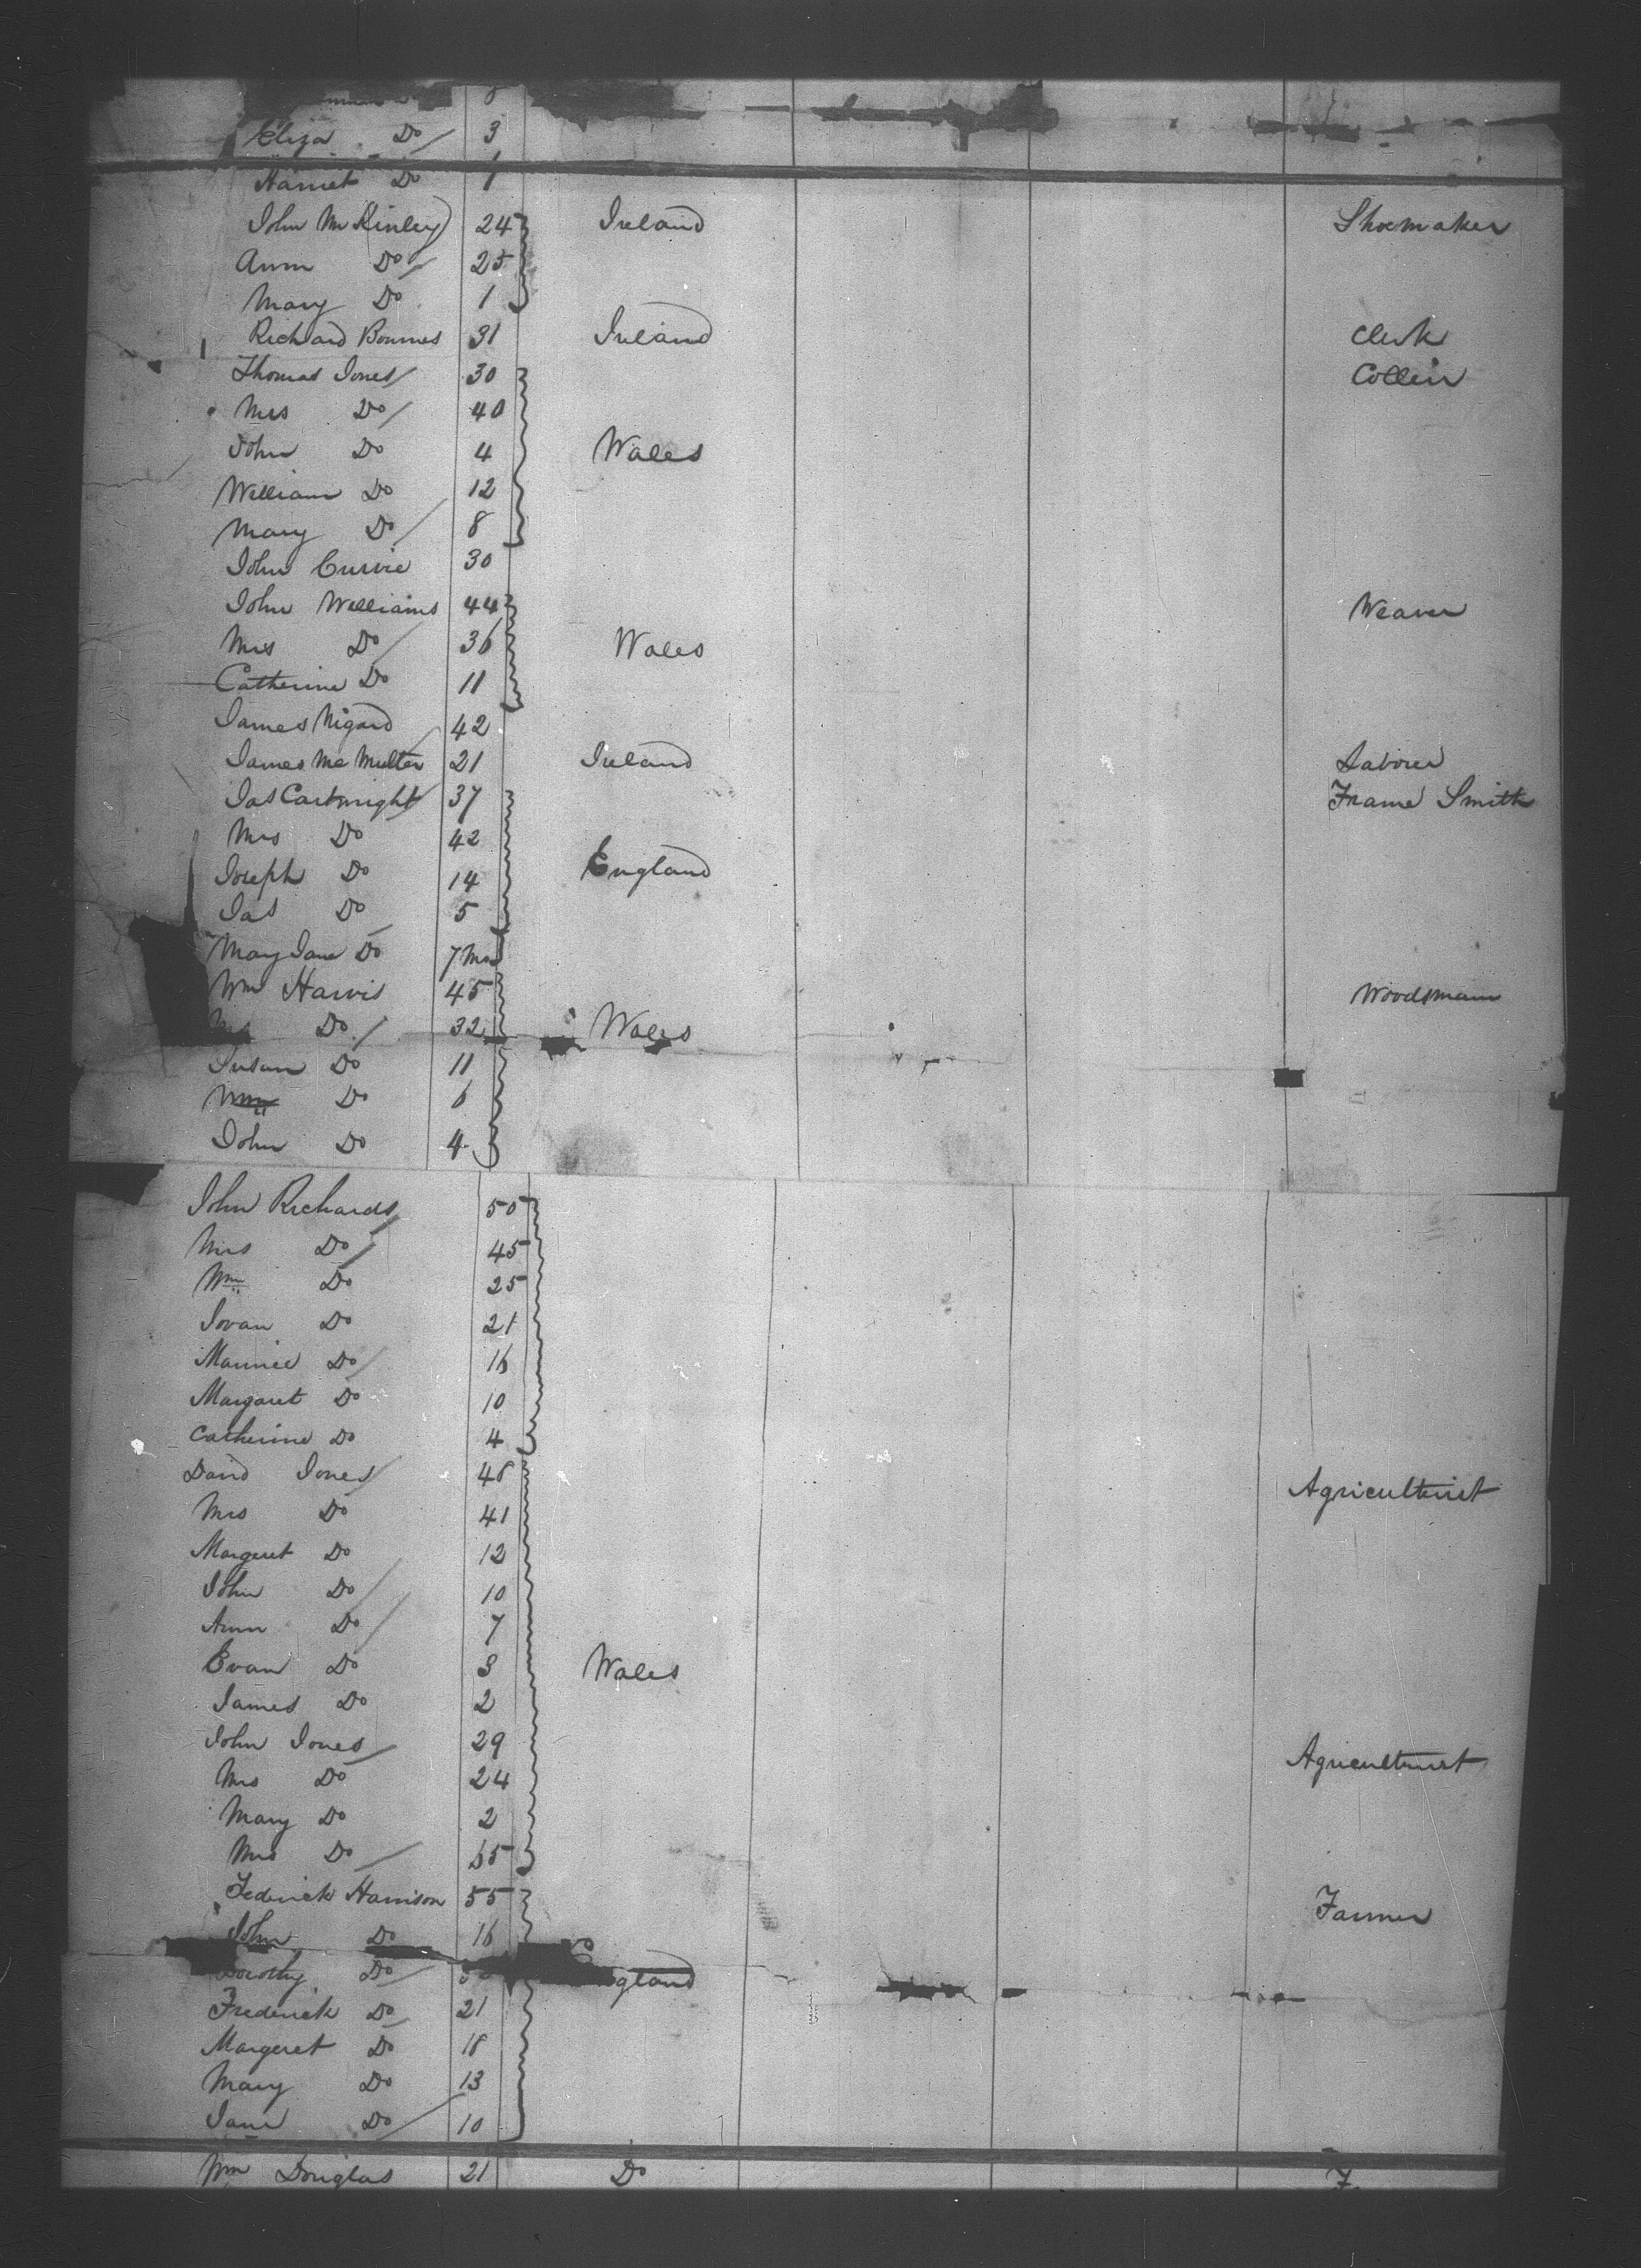 8
Eliza Do 3
Harriet Do 1
John McKinley 24 Ireland Shoemaker
Ann Do 25
Mary Do 1
Richard Bonnes 31 Ireland Clerk
Thomas Jones 30 Collier
Mrs Do 40
John Do 4 Wales
William Do 12
Mary Do 8
John Currie 30
John Williams 44 Weaver
Mrs Do 36 Wales
Catherine Do 11
James Nigard 42
James Mc Multer 21 Ireland Labourer
Jas Cartwright 37 Frame Smith
Mrs Do 42
Joseph Do 14 England
Jas Do 5
Mary Jane Do 7 Mos
Wm Harris 45 Woodsman
Mrs Do 32 Wales
Susan Do 11
Wm Do 6
John Do 4
John Richards 50
Mrs Do 45
Wm Do 25
Jovan Do 21
Maurice Do 16
Margaret Do 10
Catherine Do 4
David Jones 48 Agriculturist
Mrs Do 41
Margeret Do 12
John Do 10
Ann Do 7
Evan Do 3 Wales
James Do 2
John Jones 29 Agriculturist
Mrs Do 24
Mary Do 2
Mrs Do 65
Federick Harrison 55 Farmer
John Do 16
Dorothy Do England
Frederick Do 21
Margeret Do 18
Mary Do 13
Jane Do 10
Wm Douglas 21 Do F